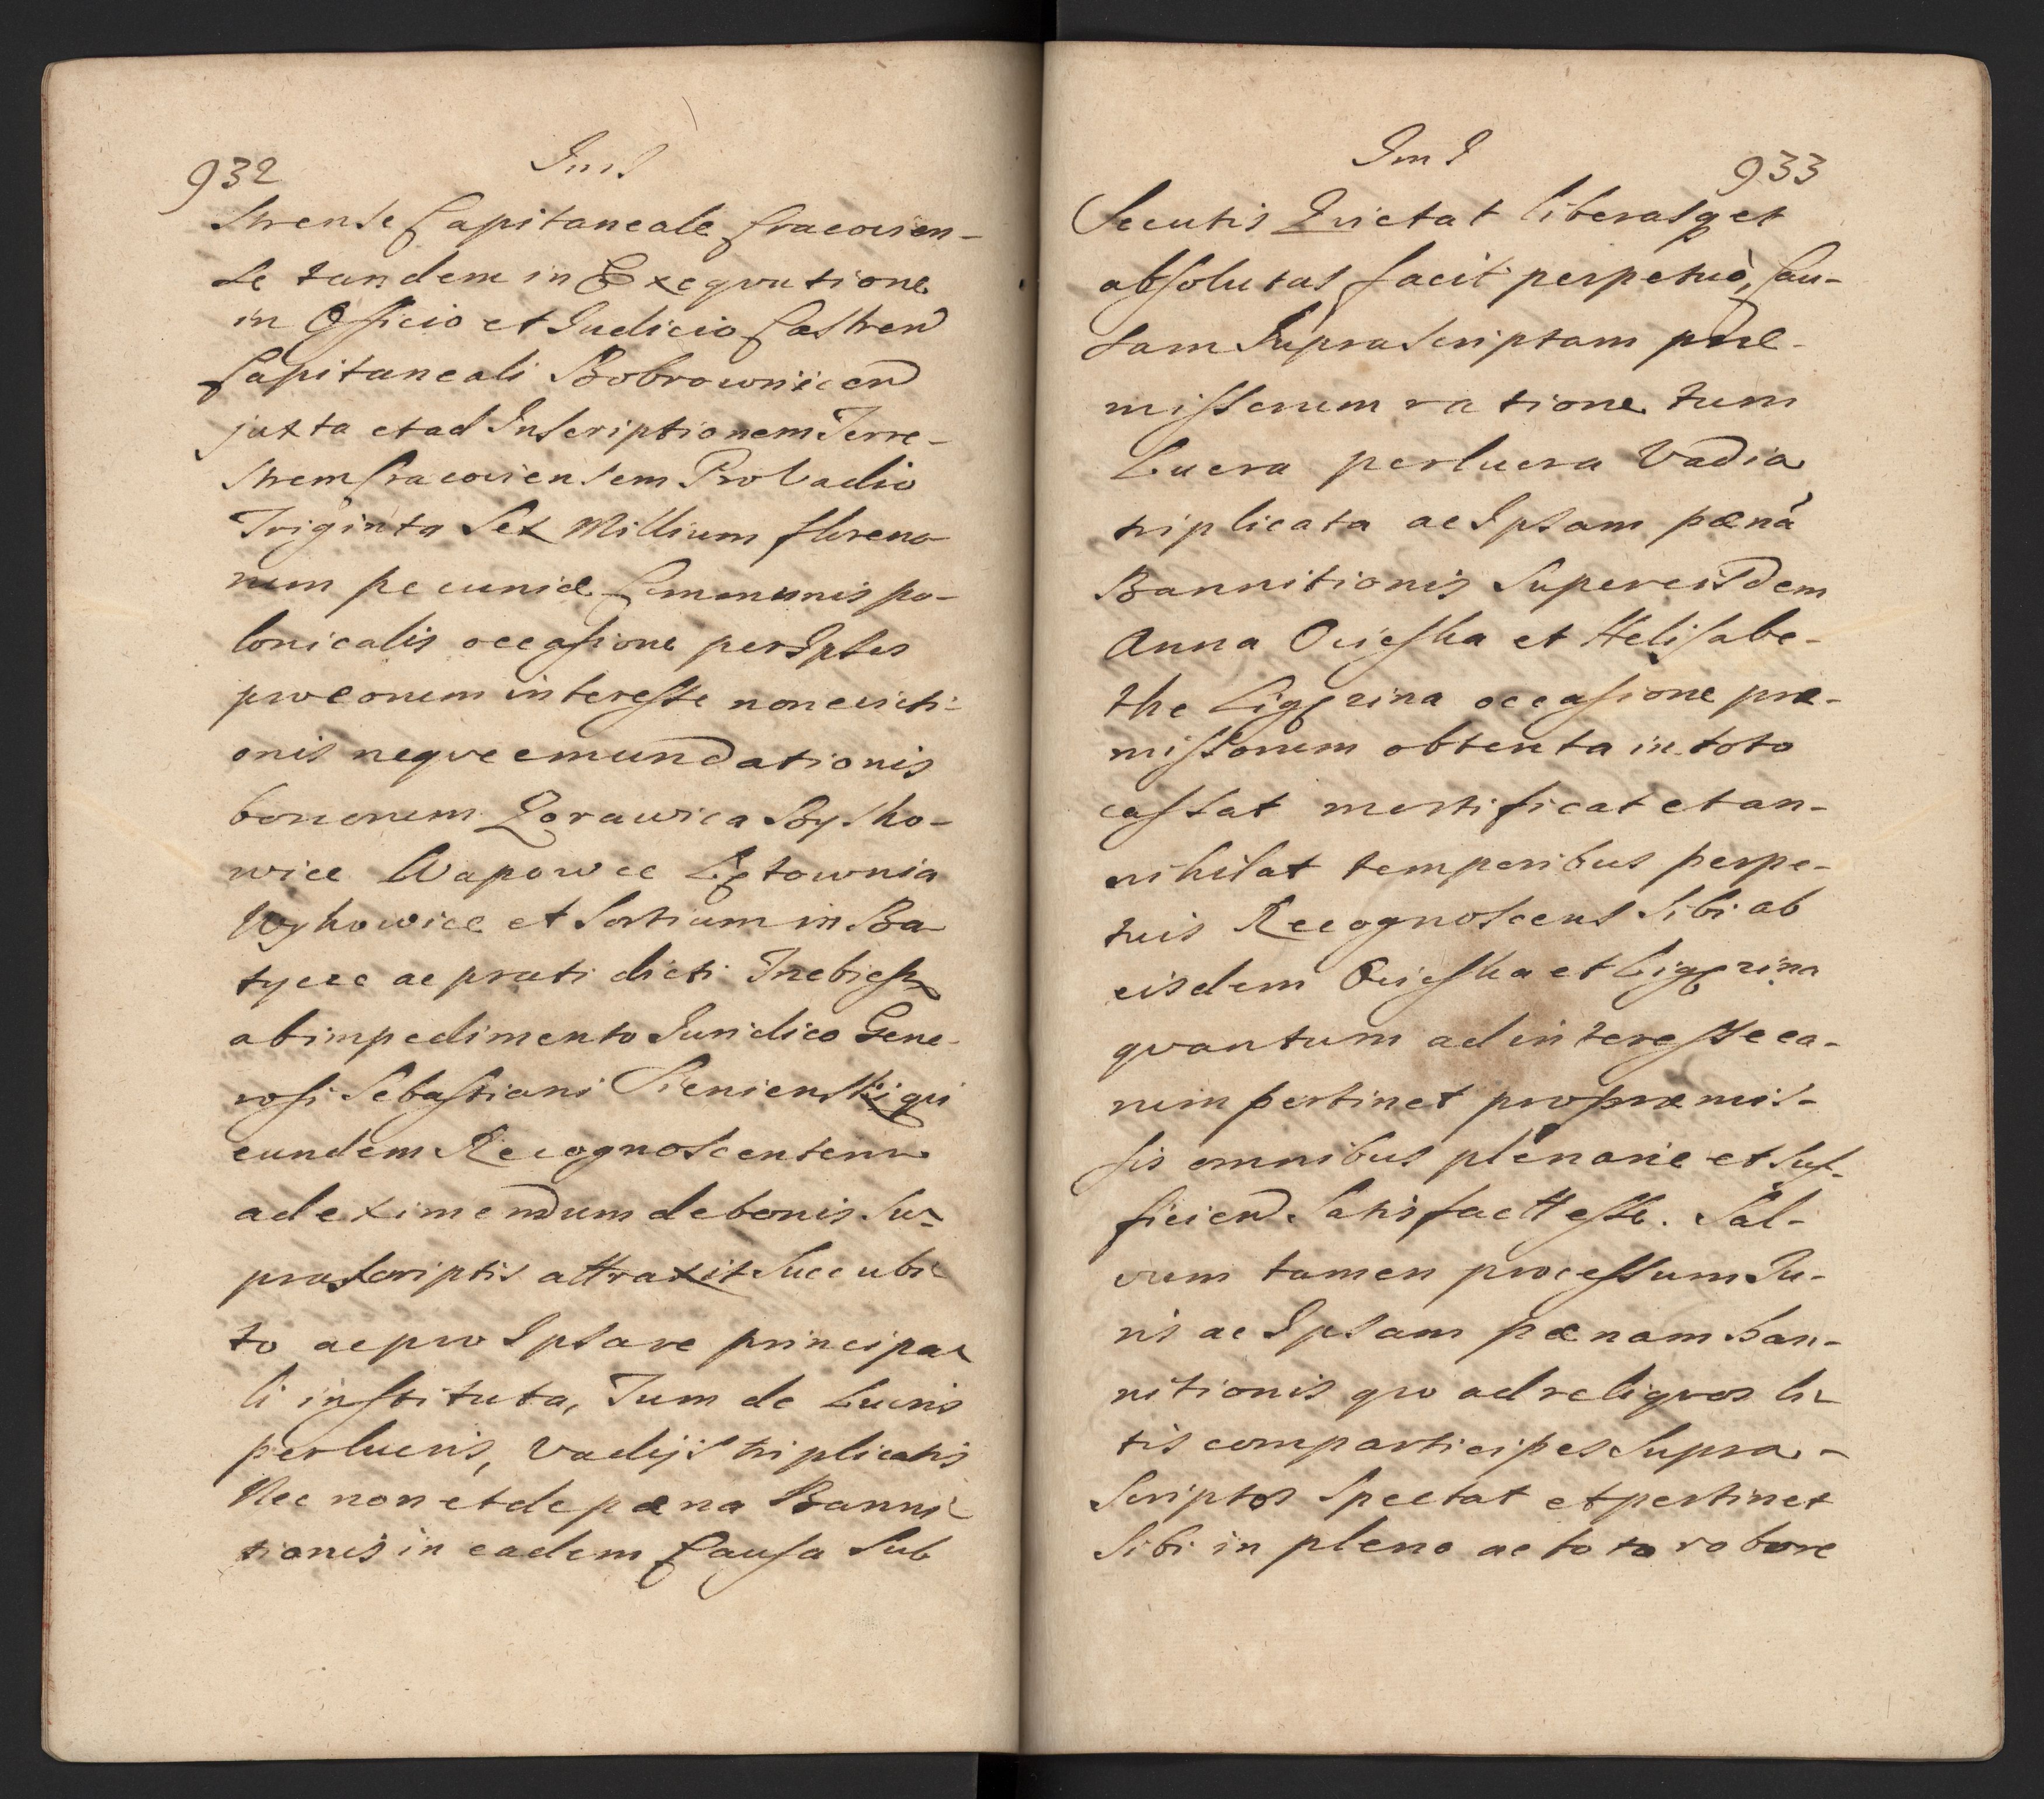 932
Im I
strense Capitaneale Cracovien-
se tandem in Exeqvutione
in Officio et Judicio Castren
Capitaneali Bobrownicen
juxta et ad Inscriptionem Terre-
strem Cracoviensem Pro Vadio
Triginta Sex Millium floreno-
rum pecuniæ Communis po-
lonicalis occasione per Ipsos
pro eorum interesse non evicti-
onis neqve emundationis
bonorum Zorawica Bysko-
wice Wapowce Lętownia
Wykowice et Sortium in Ba-
tycze ac prati dicti Trebiesz
ab impedimento Juridico Gene-
rosi Sebastiani Sienienski qui
eundem Recognoscentem
ad eximendum de bonis Su-
prascriptis attraxit Succubi-
to ac pro Ipsa re principa-
li instituta, Tum de Lucris
perlucris, Vadijs triplicatis
Nec non et de pæna Banni-
tionis in eadem Causa Sub
Im I
933
Secutis Qvietat liberasq et
absolutas facit perpetuò, Cau-
sam Supra Scriptam præ-
missorum ratione tum
Lucra perlucra Vadia
triplicata ac Ipsam pænã
Bannitionis Super eisdem
Anna Ocieska et Helisabe-
the Ligęzina occasione præ-
missorum obtenta in toto
cassat mortificat et an-
nihilat temporibus perpe-
tuis Recognoscens Sibi ab
eisdem Ocieska et Ligęzina
qvantum ad interesse ea-
rum pertinet pro præmis-
sis omnibus plenarie et Suf-
ficien Satisfactt esse. Sal-
vum tamen processum Ju-
ris ac Ipsam pænam ban-
nitionis qvo ad reliqvos li-
tis comparticipes Supra-
Scriptos Spectat et pertinet
Sibi in pleno ac toto robore